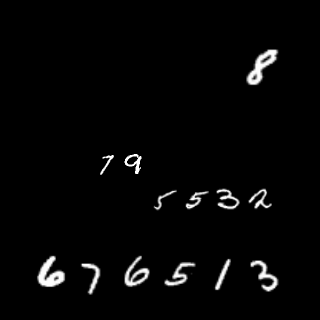 8
79
5532
676513